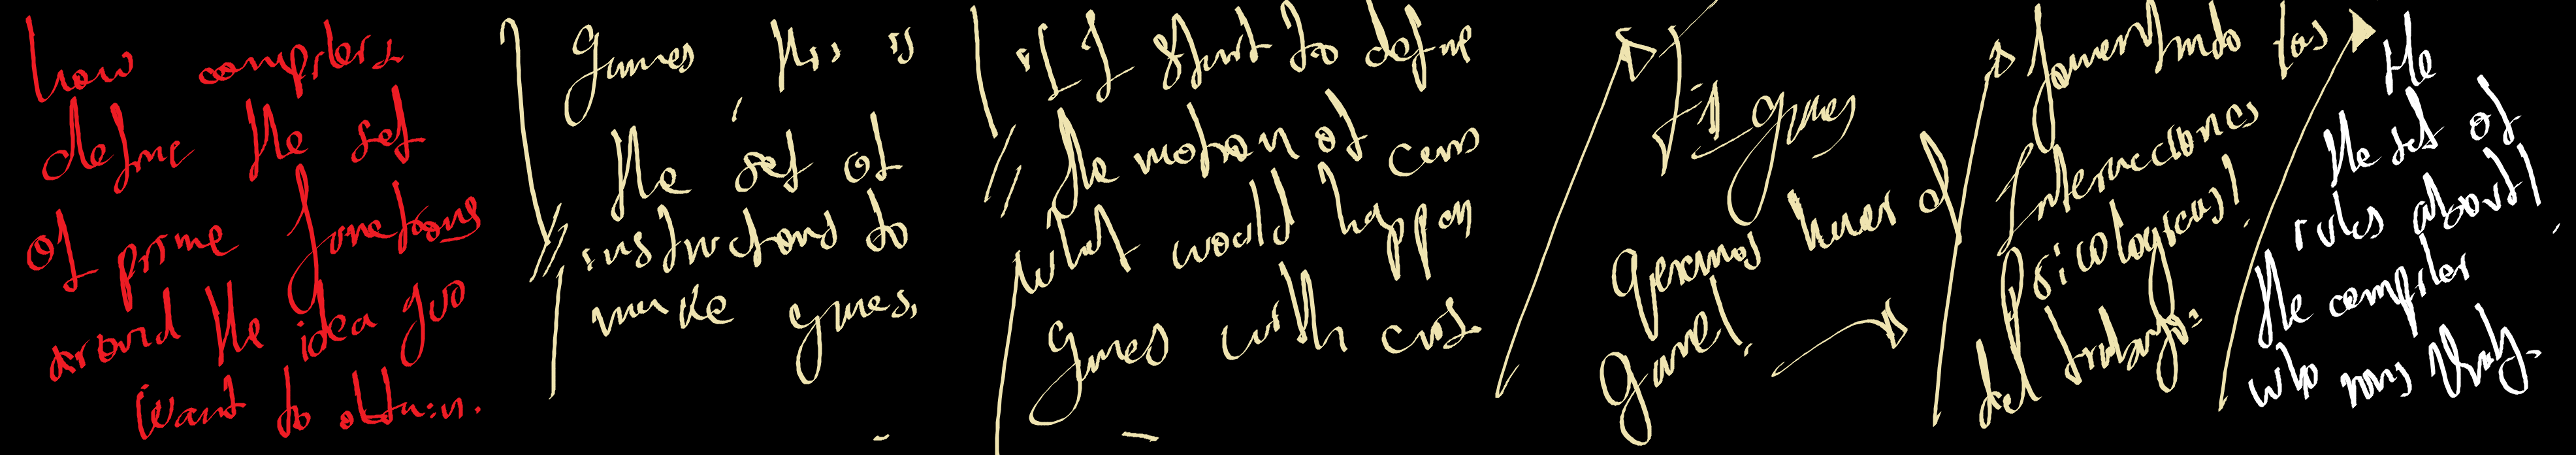 how compilers
define the set
of prime functions
around the idea you
want to obtain.
games this is
the set of
instructions to
make games.
if I start to define
the motion of cars
what would happen
games with cars
games
queremos hacer el
game!
fomentando las
interacciones
psicologicas!
del trabajo:
the
the set of
rules about
the compiler
who runs